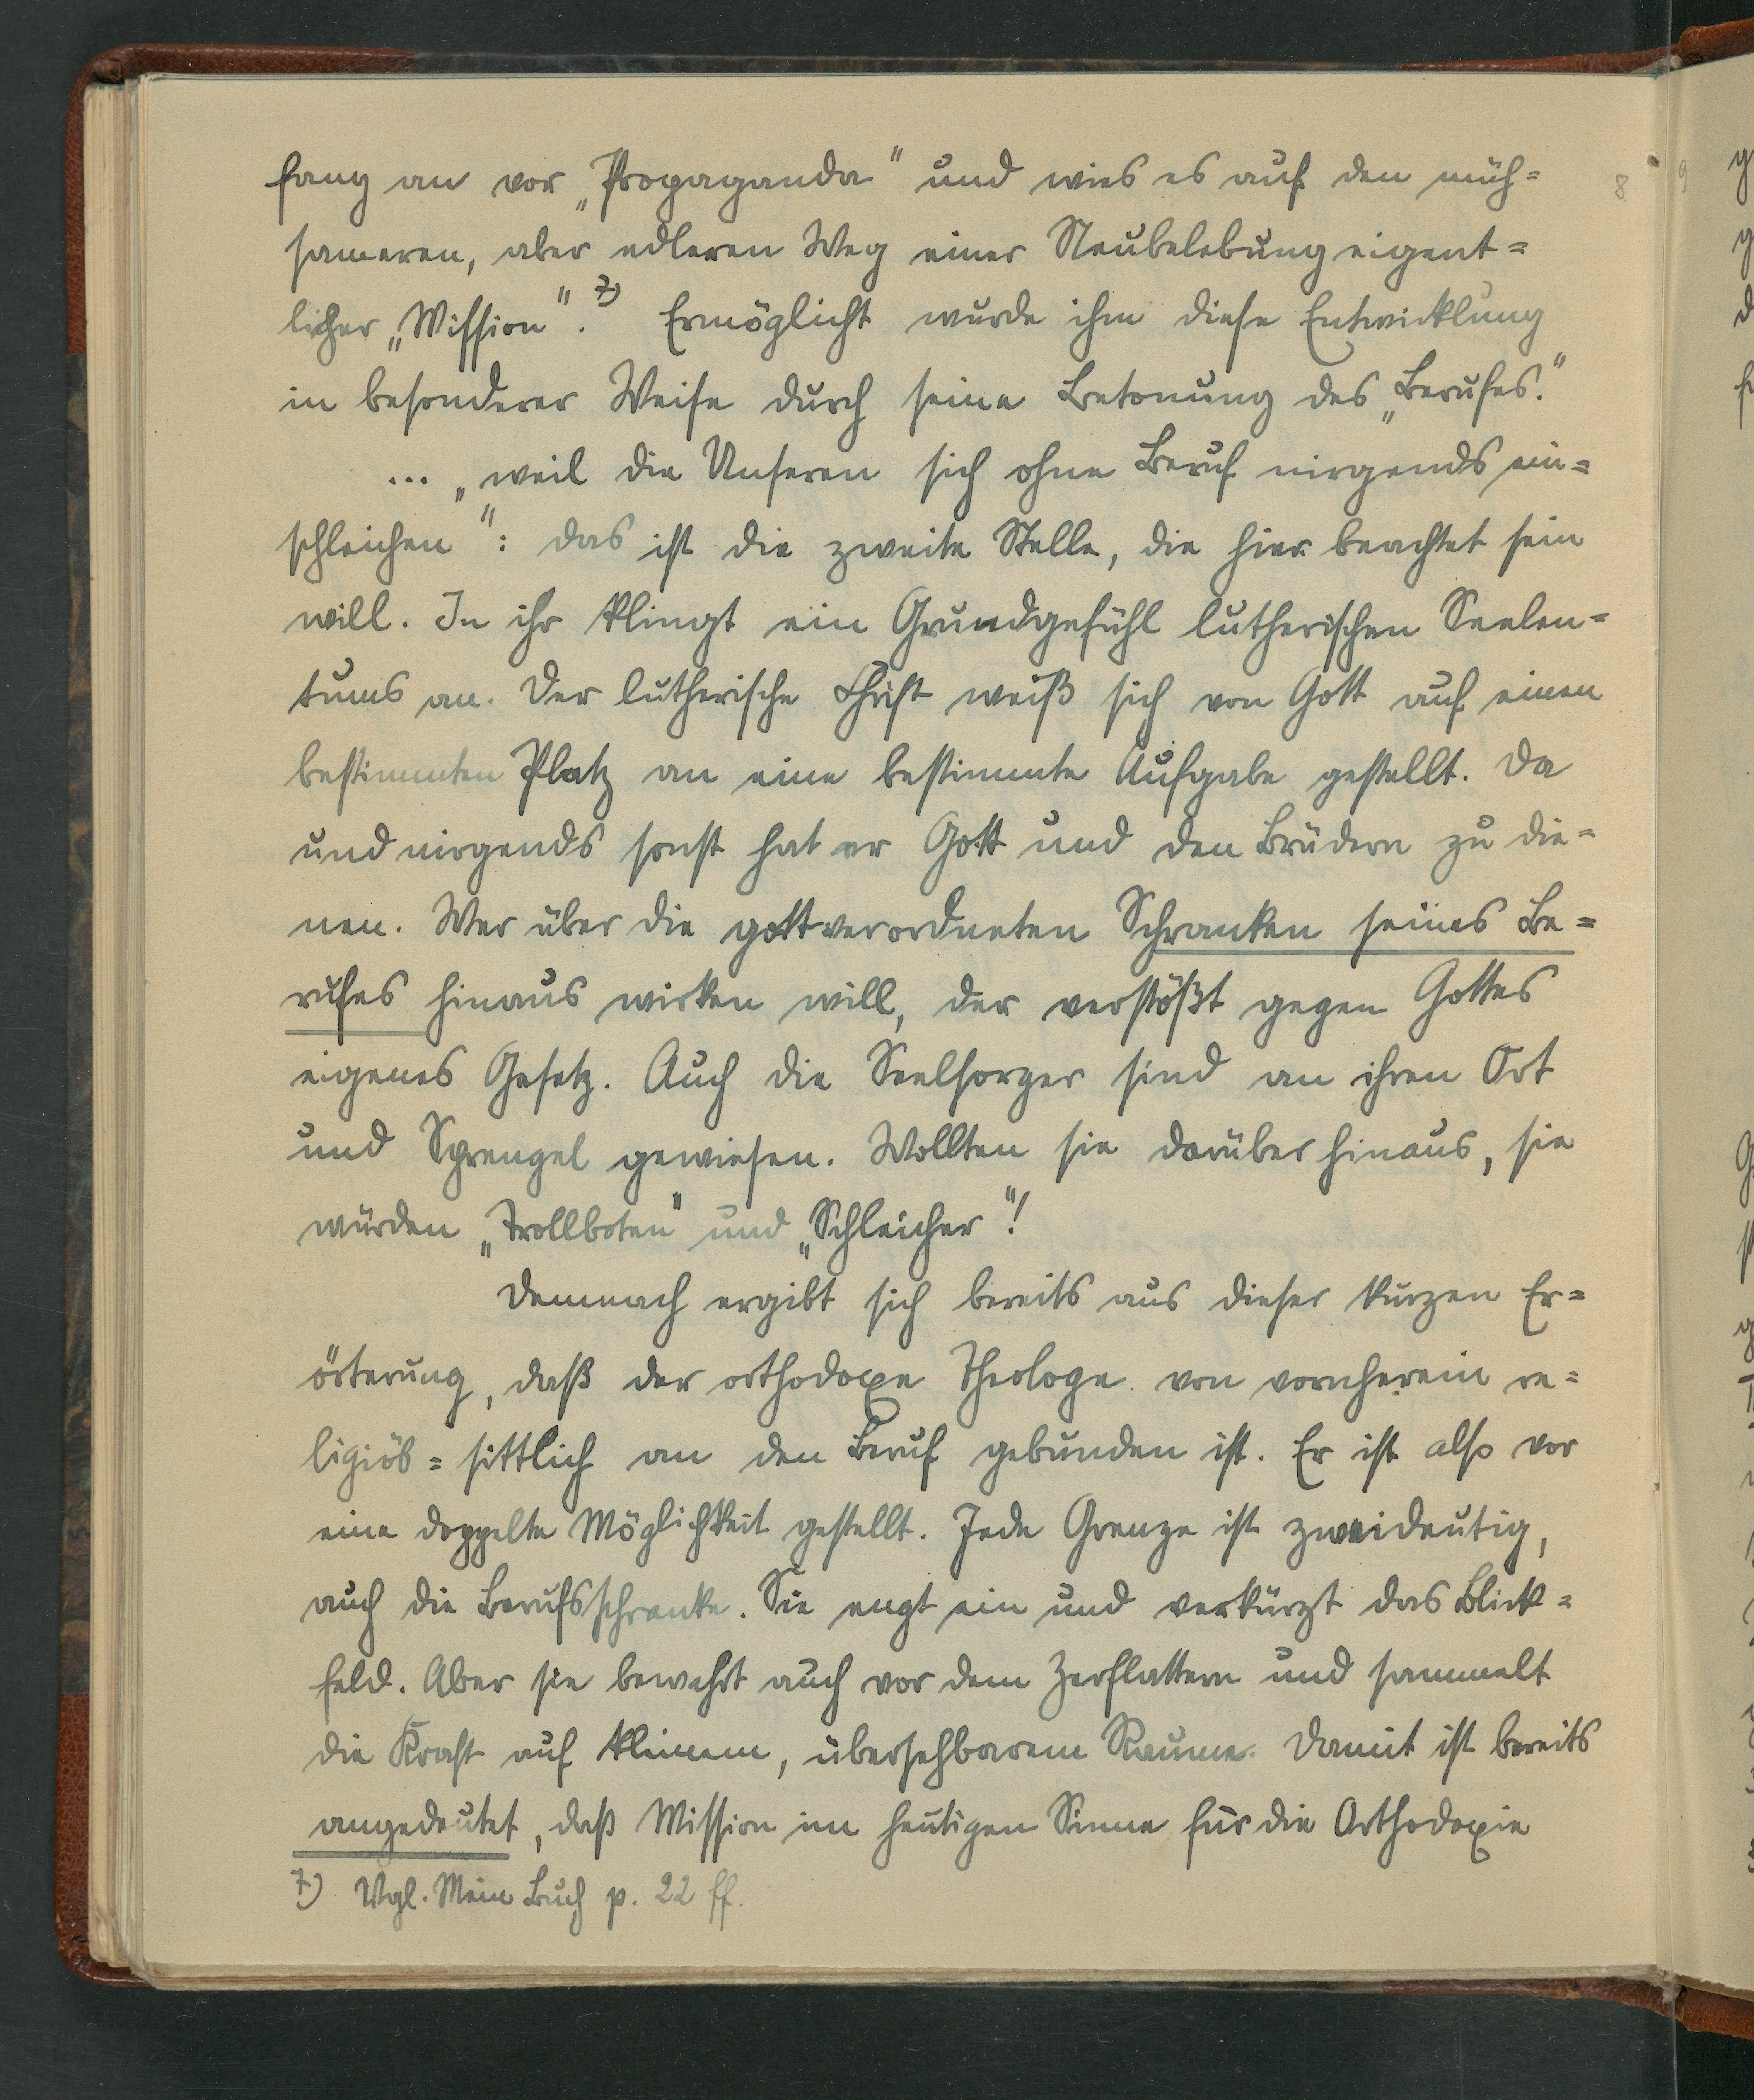 fang an vor „Propaganda" und wies es auf den müh=
8
sameren, aber edleren Weg einer Neubelebung eigent=
licher „Mission". 7) Ermöglicht wurde ihm diese Entwicklung
in besonderer Weise durch seine Betonung des „Berufes."
... „weil die Unseren sich ohne Beruf nirgends ein=
schleichen": das ist die zweite Stelle, die hier beachtet sein
will. In ihr klingt ein Grundgefühl lutherischen Seelen=
tums an. Der lutherische Christ weiß sich von Gott auf einen
bestimmten Platz an eine bestimmte Aufgabe gestellt. Da
und nirgends sonst hat er Gott und den Brüdern zu die=
nen. Wer über die gottverordneten Schranken seines Be=
rufes hinaus wirken will, der verstößt gegen Gottes
eigenes Gesetz. Auch die Seelsorger sind an ihren Ort
und Sprengel gewiesen. Wollten sie darüber hinaus, sie
würden „Trollboten" und „Schleicher"!
Demnach ergibt sich bereits aus dieser kurzen Er=
örterung, daß der orthodoxe Theologe von vornherein re=
ligiös=sittlich an den Beruf gebunden ist. Er ist also vor
eine doppelte Möglichkeit gestellt. Jede Grenze ist zweideutig,
auch die Berufsschranke. Sie engt ein und verkürzt das Blick=
feld. Aber sie bewahrt auch vor dem Zerflattern und sammelt
die Kraft auf kleinem, übersehbarem Raume. Damit ist bereits
angedeutet, daß Mission im heutigen Sinne für die Orthodoxie
7) Vgl. Mein Buch p. 22 ff.
9